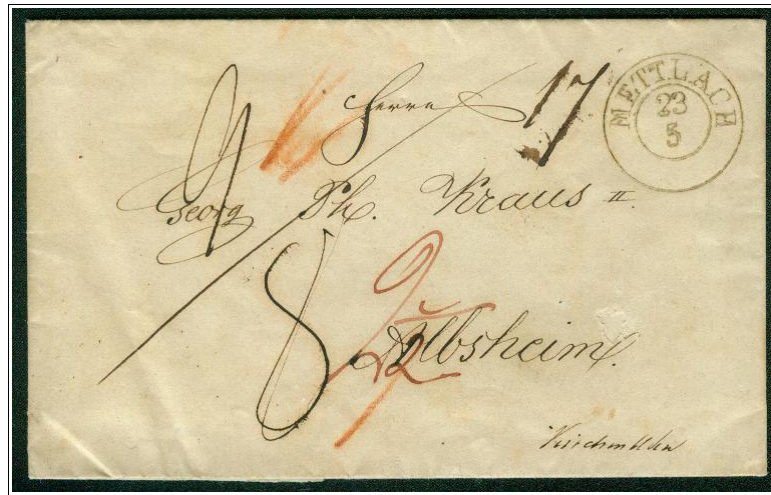 METTLACH
23
5
17
Herrn
Georg Ph. Kraus II.
8
Albsheim.